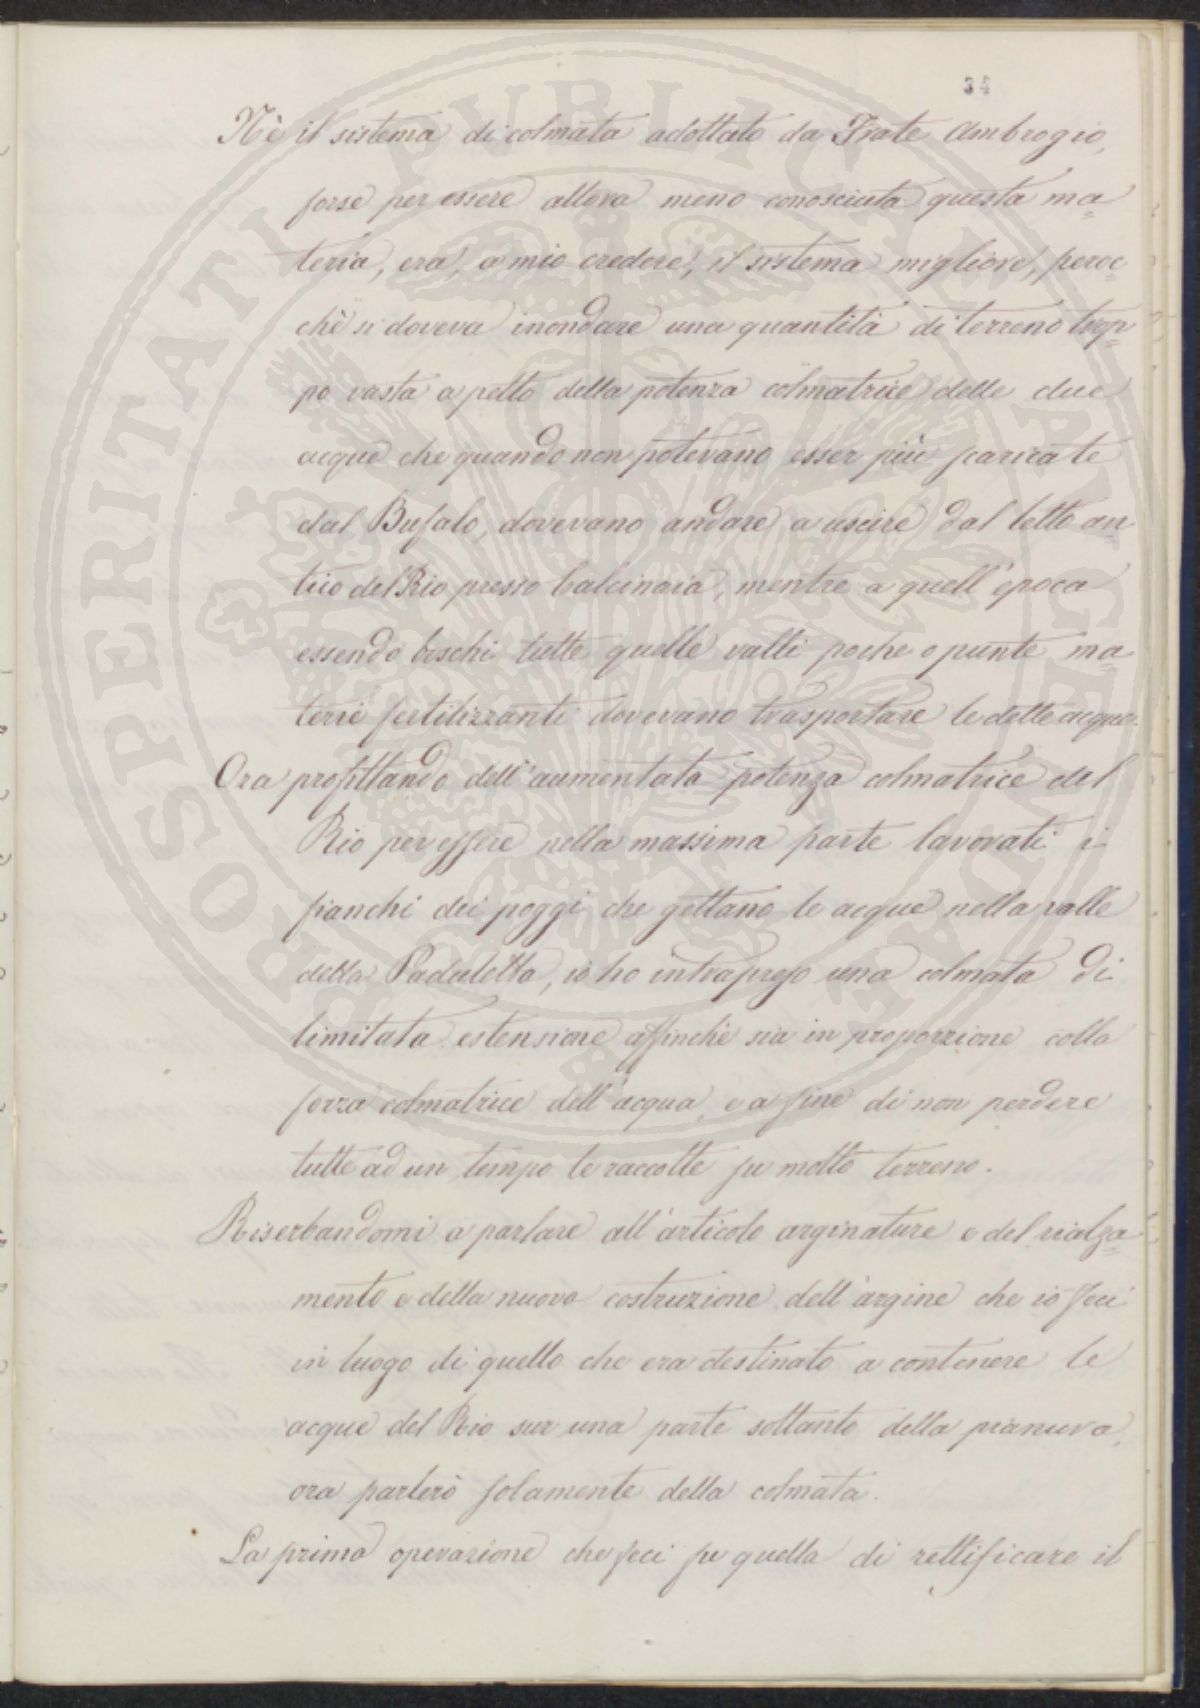 34
Nè il sistema di colmata adottato da Frate Ambrogio,
forse per essere allora meno conosciuta questa ma=
teria, era, a mio credere, il sistema migliore, peroc=
chè si doveva inondare una quantità di terreno trop=
po vasta a petto della potenza colmatrice delle due
acque che quando non potevano esser più scaricate
dal Bufalo, dovevano andare a uscire dal letto an=
tico del Rio presso Calcinaia, mentre a quell'epoca
essendo boschi tutte quelle valli poche o punte ma=
terie fertilizzanti dovevano trasportare le dette acque.
Ora profittando dell'aumentata potenza colmatrice del
Rio per essere nella massima parte lavorati i
fianchi dei poggi che gettano le acque nella valle
della Paduletta, io ho intrapreso una colmata di
limitata estensione affinchè sia in proporzione colla
forza colmatrice dell'acqua, e a fine di non perdere
tutte ad un tempo le raccolte su molto terreno.
Riserbandomi a parlare all'articolo arginature e del rialza=
mento e della nuova costruzione dell'argine che io feci
in luogo di quello che era destinato a contenere le
acque del Rio sur una parte soltanto della pianura,
ora parlerò solamente della colmata.
La prima operazione che feci fu quella di rettificare il
PROSPERITATI PUBLICAE AUGENDAE